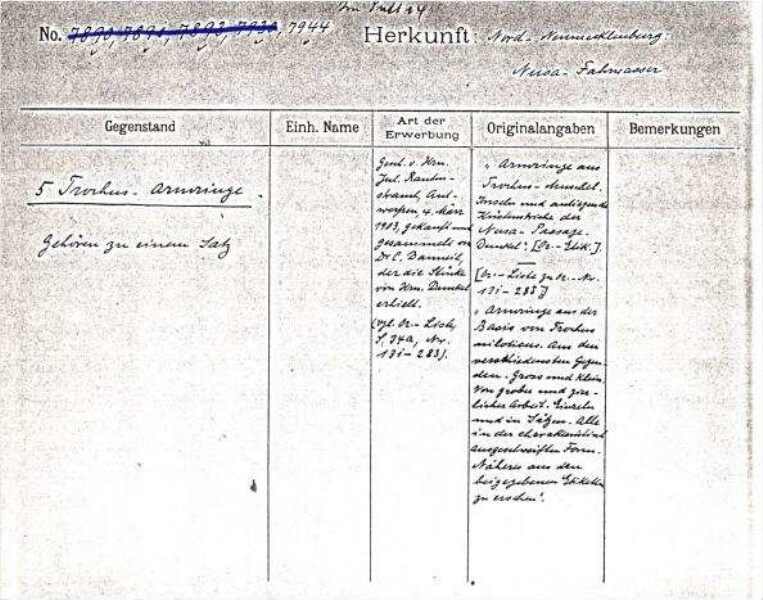 Im Pult 14
No. 7890, 7891, 7893, 7930, 7944 Herkunft: Nord-Neumecklenburg:
Nusa-Fahrwasser
Gegenstand
Einh. Name
Art der
Erwerbung
Originalangaben
Bemerkungen
5 Trochus-Armringe.
Gehören zu einem Satz
Gesch. v. Hrn.
Jul. Rauten-
strauch, Ant-
werpen, 4. März
1903, gekauft und
gesammelt von
Dr. C. Danneil,
der die Stücke
von Hrn. Dunkel
erhielt.
(vgl. Or.-Liste,
S. 34a, Nr.
131-283).
„Armringe aus
Trochus-Muschel.
Inseln und anliegende
Küstenstriche der
Nusa-Passage.
Dunkel". [Or.-Etik.].
[Or.-Liste zu Or.-Nr.
131-283]
„Armringe aus der
Basis von Trochus
niloticus. Aus den
verschiedensten Gegen-
den. Gross und klein.
Von grober und zier-
licher Arbeit. Einzeln
und in Sätzen. Alle
in der charakteristisch
ausgeschweiften Form.
Näheres aus den
beigegebenen Etiketten
zu ersehen".